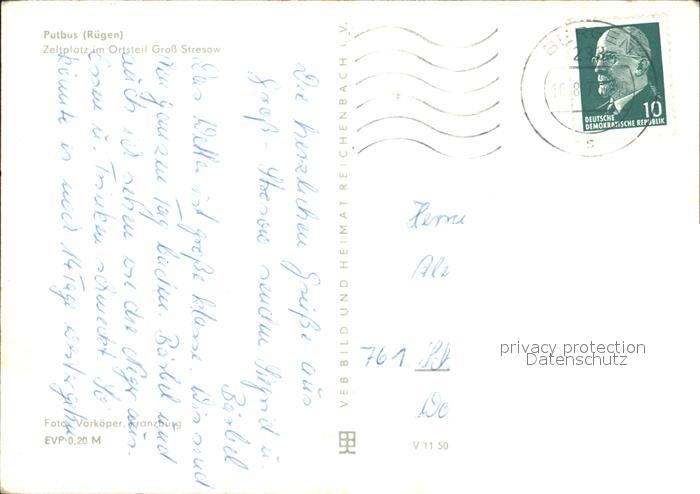 Putbus (Rügen)
Zeltplatz im Ortsteil Groß Stresow
Die herzlichsten Grüße aus
Groß-Stresow senden Sigrid u.
Bärbel
Das Wetter ist große Klasse. Wir sind
den ganzen Tag baden. Bärbel und
auch ich sehen wie die Neger aus.
Essen u. Trinken schmeckt. So
könnte es noch 14 Tage weitergehn
Foto: Vorköper, Kranzburg
EVP 0,20 M
VEB BILD UND HEIMAT REICHENBACH i. V.
V 11 50
BERGEN
10
DEUTSCHE
DEMOKRATISCHE REPUBLIK
Herrn
761
privacy protection
Datenschutz